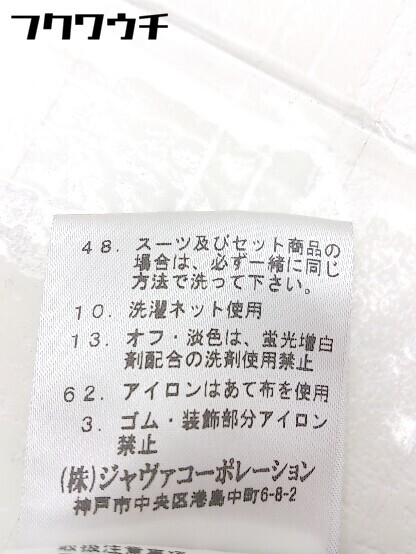 フクワウチ
48. スーツ及びセット商品の
場合は、必ず一緒に同じ
方法で洗って下さい。
10. 洗濯ネット使用
13. オフ・淡色は、蛍光増白
剤配合の洗剤使用禁止
62. アイロンはあて布を使用
3. ゴム・装飾部分アイロン
禁止
(株)ジャヴァコーポレーション
神戸市中央区港島中町6-8-2